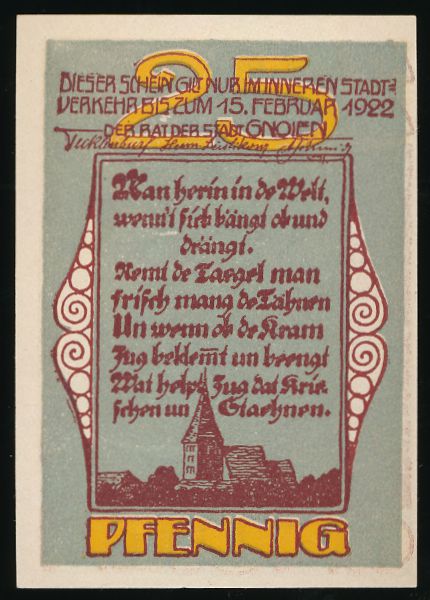 25
DIESER SCHEIN GILT NUR IM INNEREN STADT=
VERKEHR BIS ZUM 15. FEBRUAR 1922
DER RAT DER STADT GNOIEN
Man herin in de Welt,
wenn't sick bängt ob und
drängt.
Nemt de Taegel man
frisch mang de Tähnen
Un wenn ok de Kram
Jug beklem̅t un beengt
Wat help Jug dat Krie-
schen un Staehnen.
PFENNIG